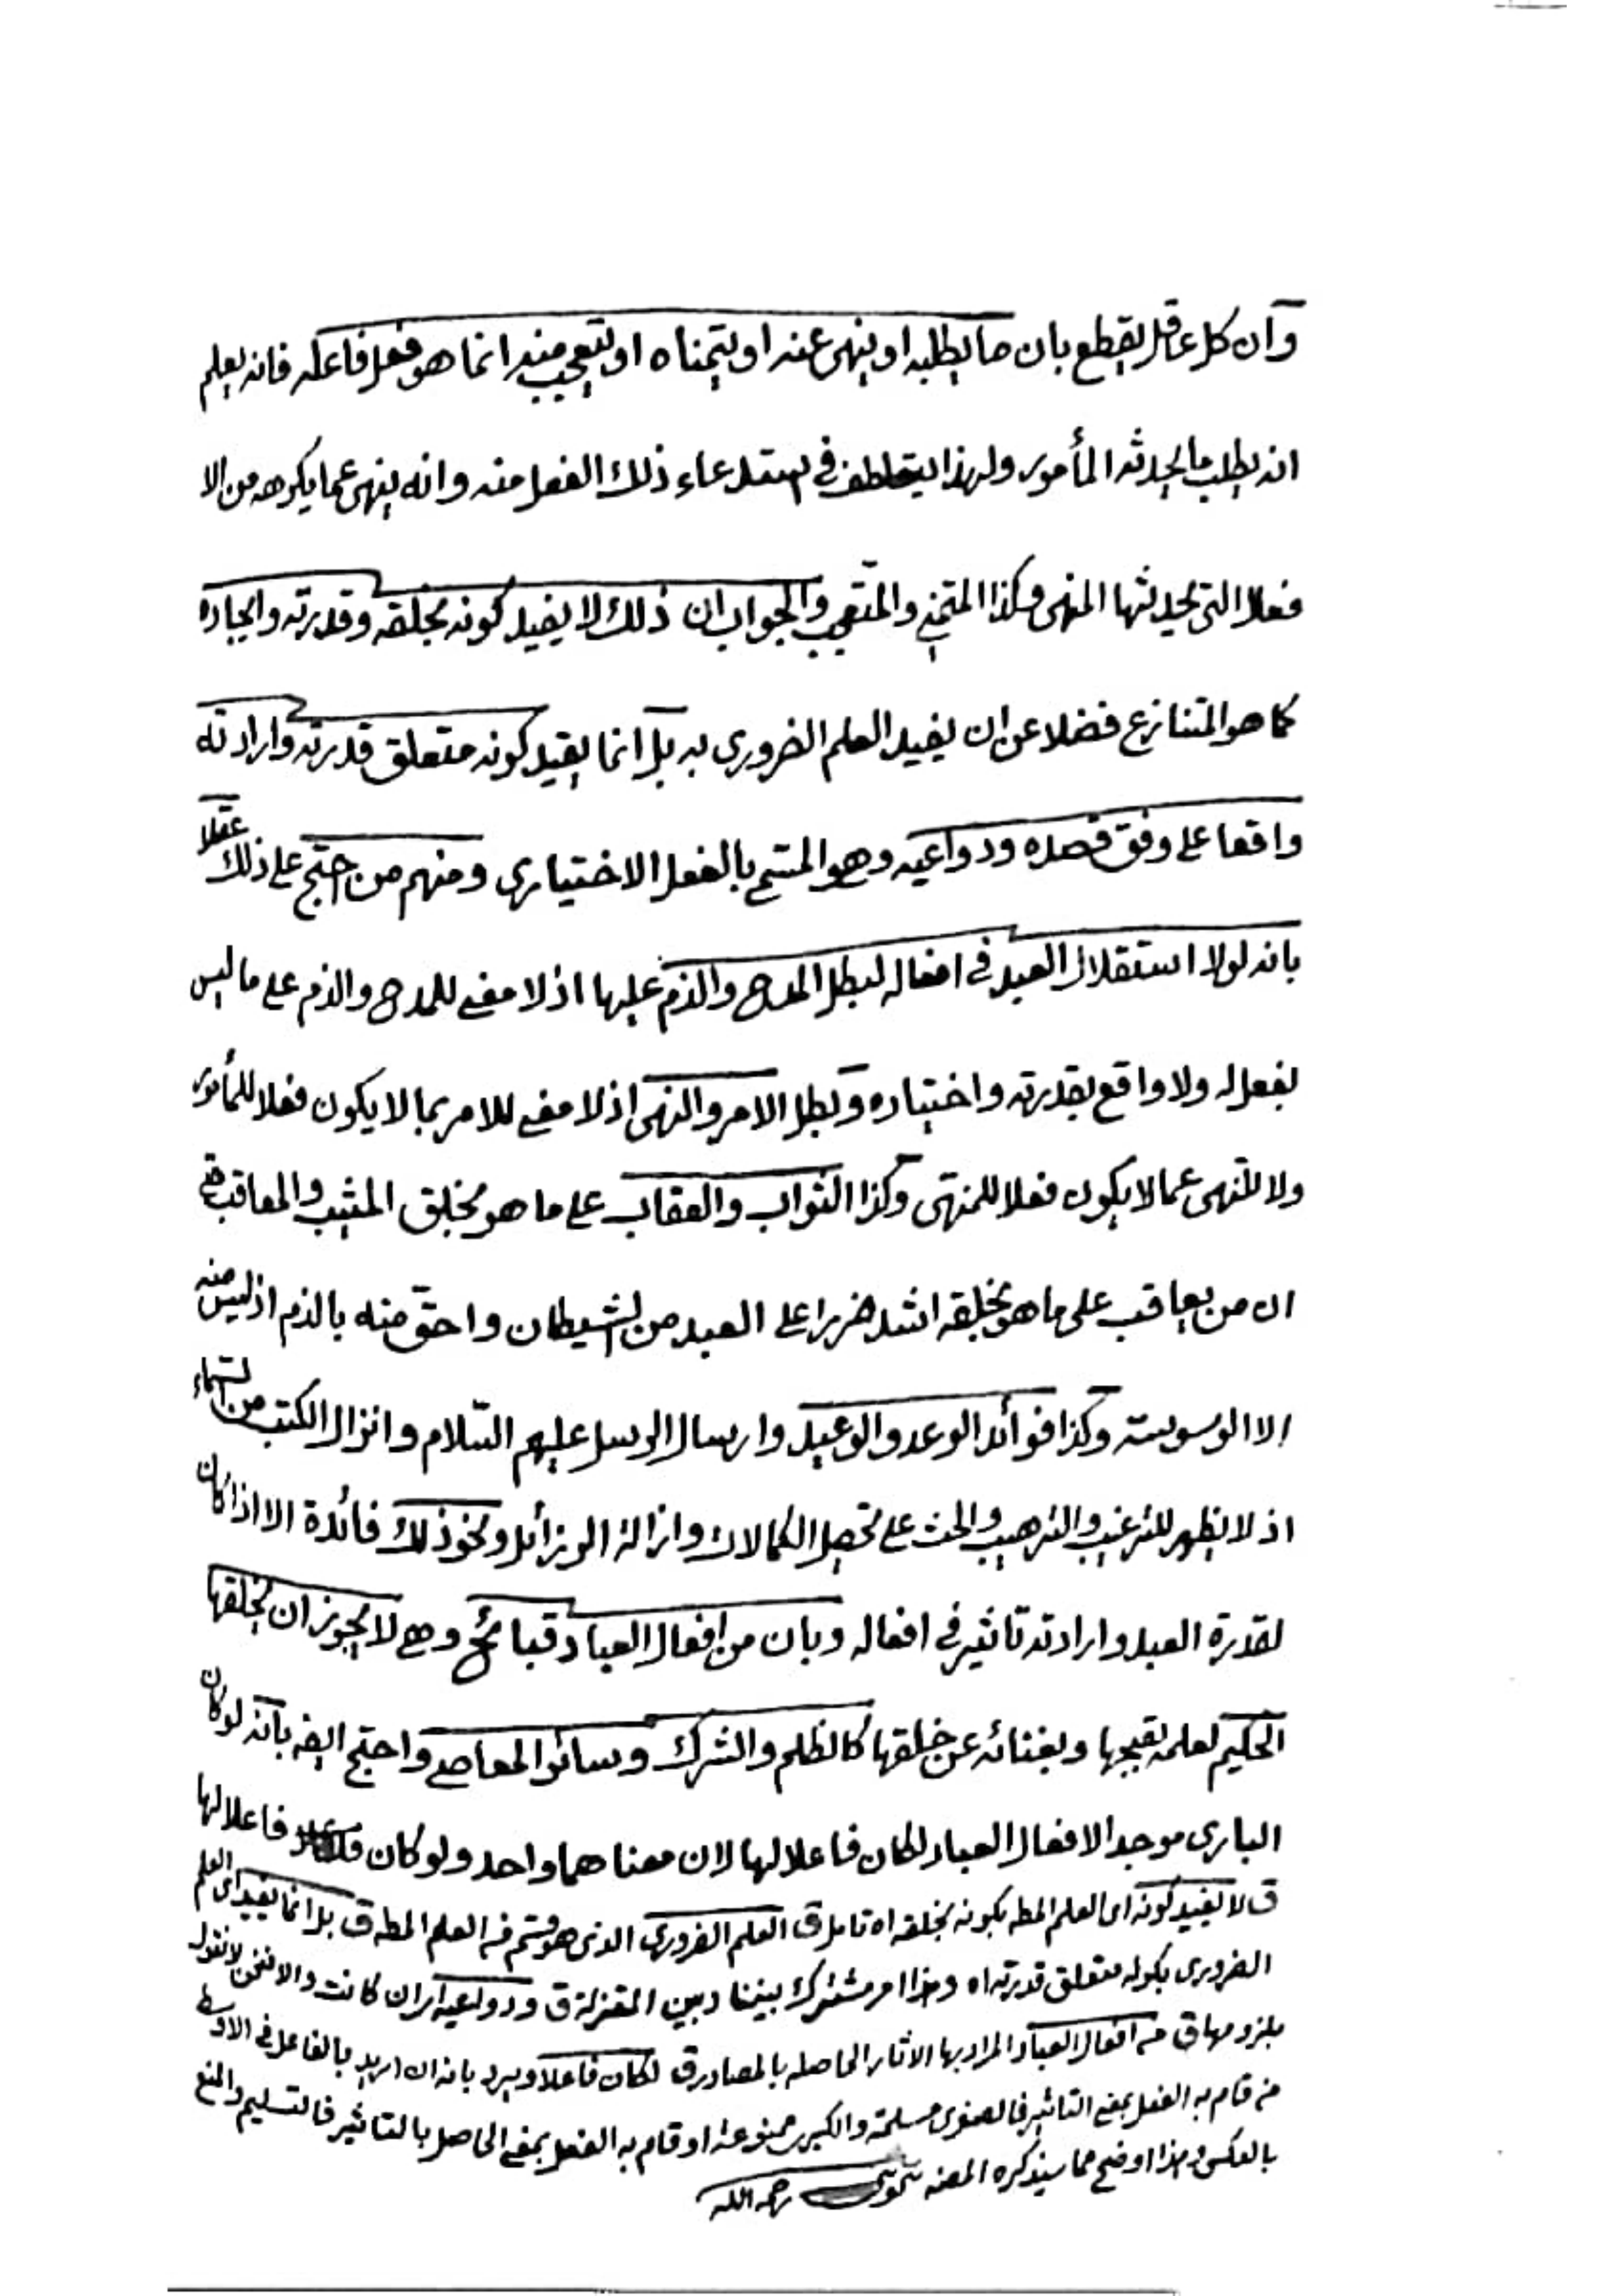 وآن كل عاقل يقطع بان ما يطلبه او ينهى عنه او يتمناه او يتعجب منه انما هو فعل فاعله فانه يعلم
انه يطلب ما يحدثه المأمور ولهذا يتلطف في استدعاء ذلك الفعل منه وانه ينهى عما يكرهه من الا
فعلا التى يحدثها المنهى وكذا المتمنى والمتعجب والجواب ان ذلك لا يفيد كونه بخلقه وقدرته وايجاده
كما هو المتنازع فضلا عن ان يفيد العلم الضرورى به بل انما يفيد كونه متعلق قدرته وارادته
واقعا على وفق قصده ودواعيه وهو المسمى بالفعل الاختيارى ومنهم من احتج على ذلك عقلا
بانه لولا استقلال العبد في افعاله لبطل المدح والذم عليها اذ لا معنى للمدح والذم على ما ليس
بفعل له ولا واقع بقدرته واختياره وبطل الامر والنهى اذ لا معنى للامر بما لا يكون فعلا للمأمور
ولا للنهى عما لا يكون فعلا للمنهى وكذا الثواب والعقاب على ما هو بخلق المثيب والمعاقب حتى
ان من يعاقب على ما هو بخلقه اشد ضررا على العبد من الشيطان واحق منه بالذم اذ ليس منه
الا الوسوسة وكذا فوائد الوعد والوعيد وارسال الرسل عليهم السّلام وانزال الكتب من السّماء
اذ لا يظهر للترغيب والترهيب والحث على تحصيل الكمالات وازالة الرزائل ونحو ذلك فائدة الا اذا كان
لقدرة العبد وارادته تاثير في افعاله وبان من افعال العباد قبائح وهى لا يجوز ان يخلقها
الحكيم لعلمه بقبحها وبغنائه عن خلقها كالظلم والشرك وسائر المعاصى واحتج ايضه بانه لو كان
البارى موجد الافعال العباد لكان فاعلا لها لان معناهما واحد ولو كان فاعلا لها
ق لا يفيد كونه اى العلم المطه بكونه بخلقه اه تامل ق العلم الضرورى الذى هو قسم من العلم المطه ق بل انما يفيد اى العلم
الضرورى بكونه متعلق قدرته اه وهذا امر مشترك بيننا وبين المعتزلة ق ودواعيه ان كانت والا فنحن لا نقول
بلزومها ق من افعال العباد المراد بها الاثار الحاصله بالمصادر ق لكان فاعلا ويرد بانه ان اريد بالفاعل فى الاوسط
من قام به الفعل بمعنى التاثير فالصغرى مسلمة والكبرى ممنوعة او قام به الفعل بمعنى الحاصل بالتاثير فالتسليم والمنع
بالعكس وهذا اوضح مما سيذكره المصنه رحمه الله